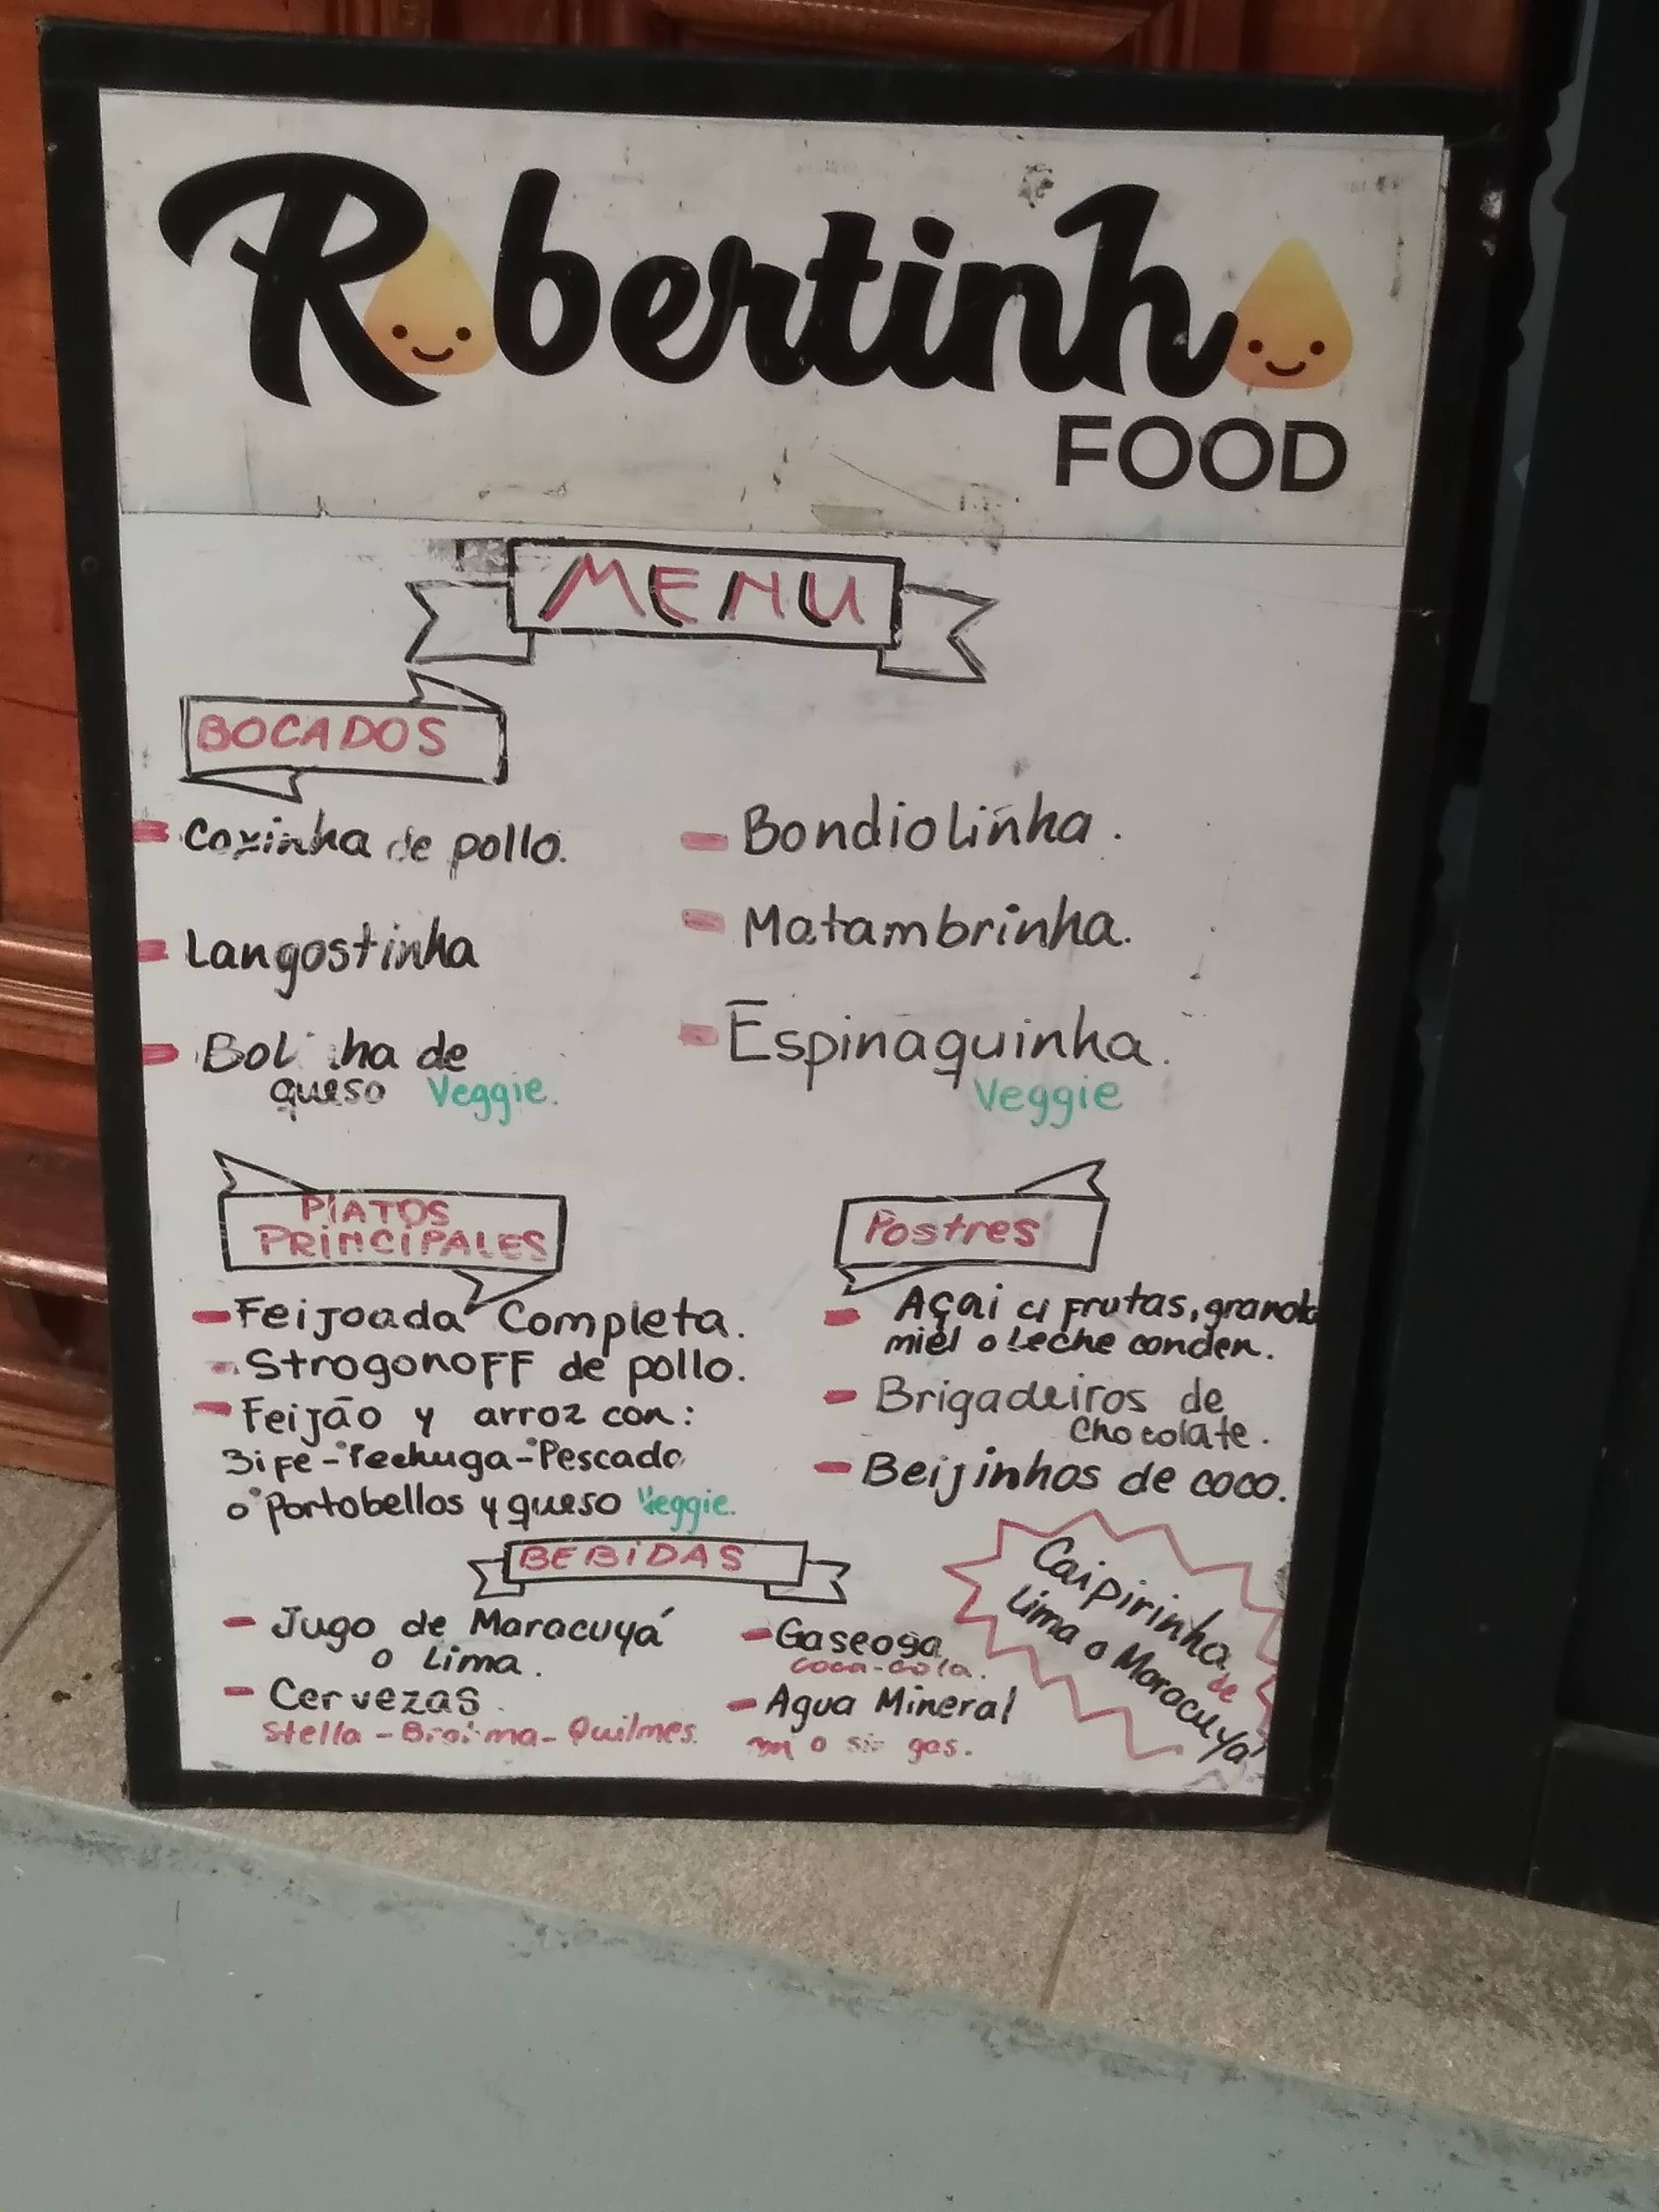 Robertinho
FOOD
MENU
BOCADOS
- Coxinha de pollo.
- Langostinha
- Bolinha de
queso Veggie.
- Bondiolinha.
- Matambrinha.
- Espinaquinha.
Veggie
PLATOS
PRINCIPALES
- Feijoada Completa.
- Strogonoff de pollo.
- Feijão y arroz con:
Bife-°Pechuga-°Pescado
o °Portobellos y queso Veggie.
Postres
- Açai c/ Frutas, granola
miel o Leche conden.
- Brigadeiros de
Chocolate.
- Beijinhos de coco.
BEBIDAS
- Jugo de Maracuyá
o Lima.
- Cervezas.
Stella - Brahma - Quilmes.
- Gaseosa
Coca-Cola.
- Agua Mineral
o sin gas.
Caipirinha de
Lima o Maracuyá